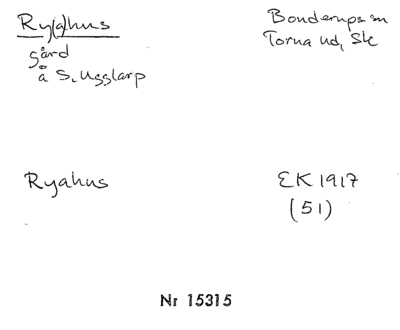 Ry(a)hus
Bonderups sn
Torna hd, Sk
gård
å S. Ugglarp
Ryahus
EK 1917
(51)
Nr 15315